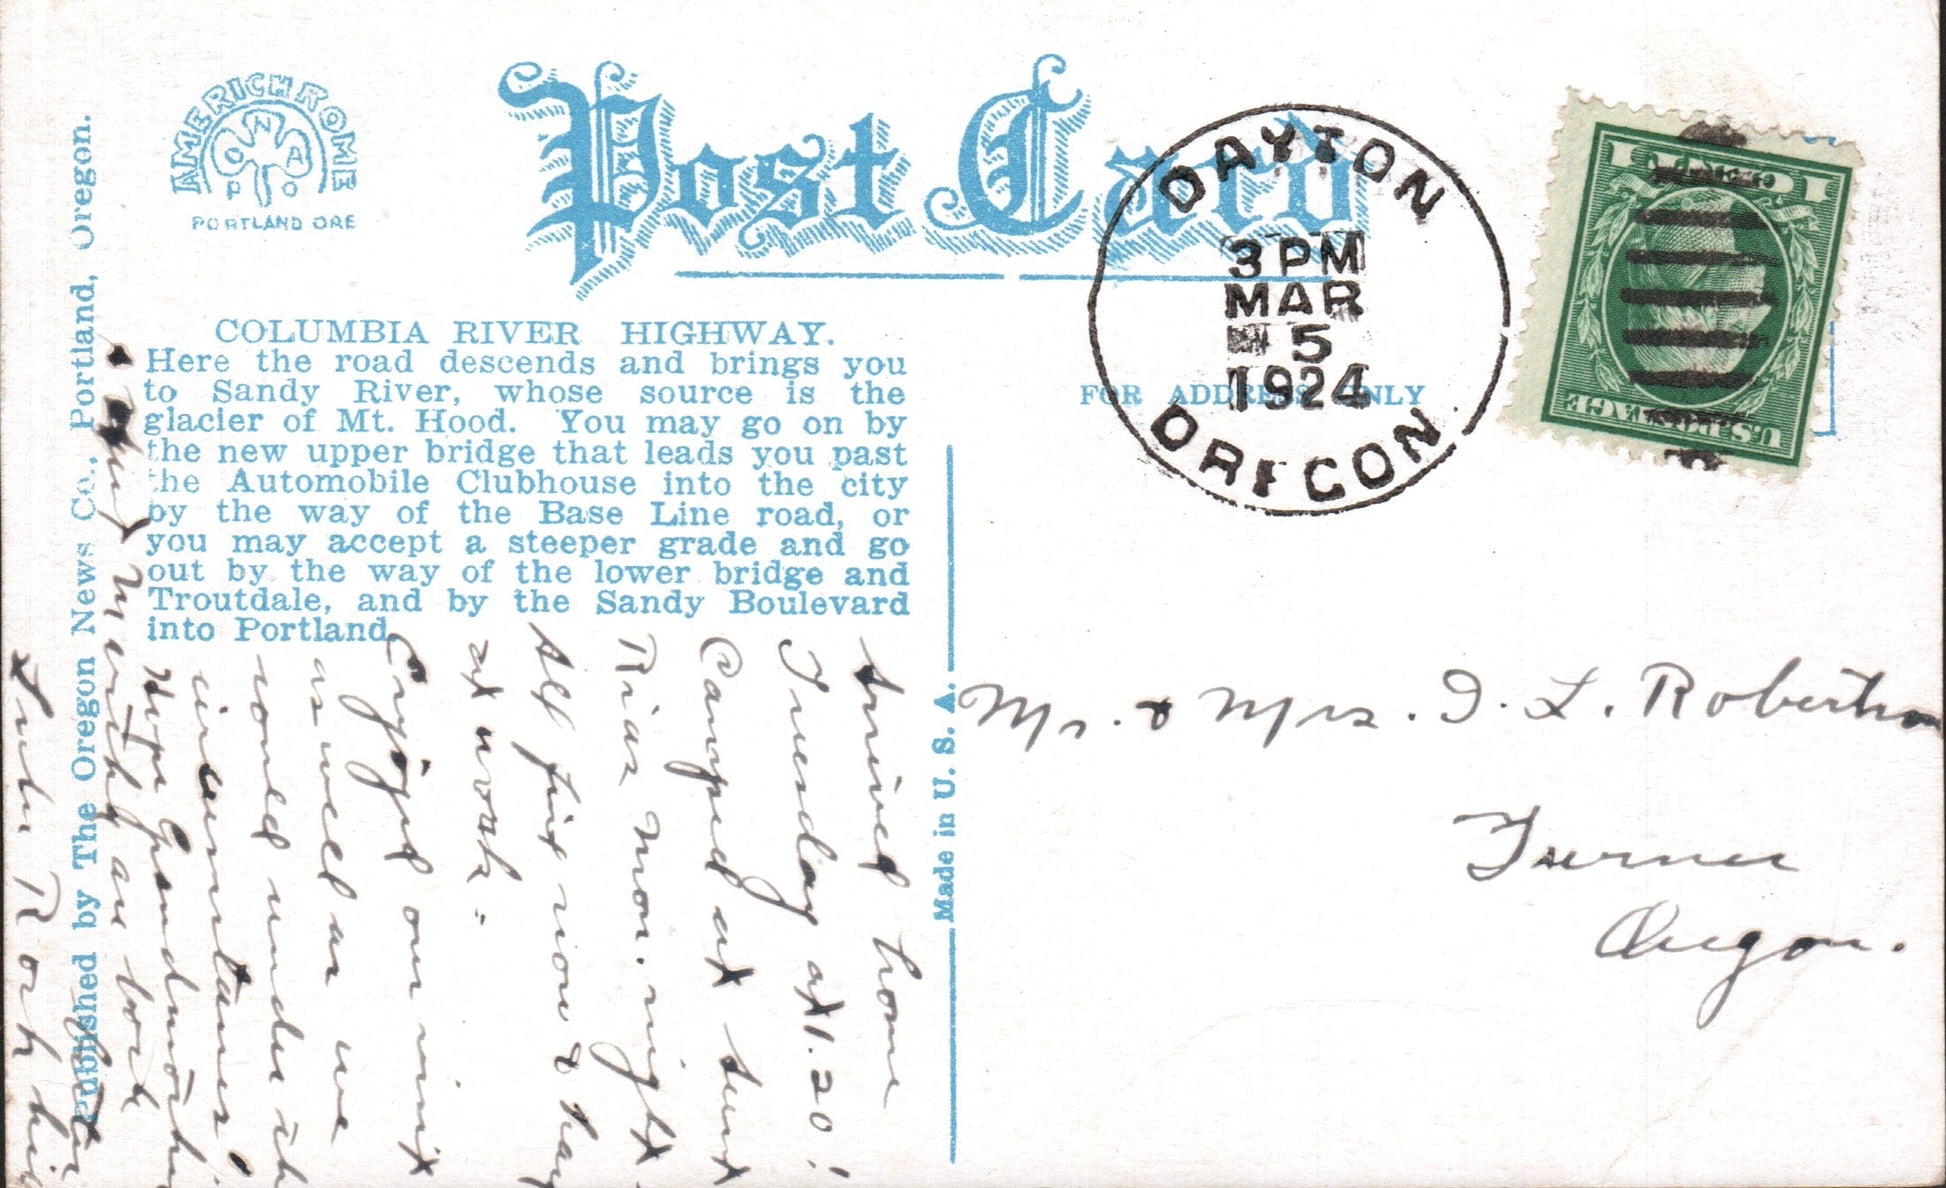 AMERICHROME
ONA
P O
PORTLAND ORE
Post Card
DAYTON
3 PM
MAR
5
1924
OREGON
1 1
U.S. POSTAGE
FOR ADDRESS ONLY
COLUMBIA RIVER HIGHWAY.
Here the road descends and brings you
to Sandy River, whose source is the
glacier of Mt. Hood. You may go on by
the new upper bridge that leads you past
the Automobile Clubhouse into the city
by the way of the Base Line road, or
you may accept a steeper grade and go
out by the way of the lower bridge and
Troutdale, and by the Sandy Boulevard
into Portland.
Published by The Oregon News Co., Portland, Oregon.
Made in U. S. A.
Mr. & Mrs. I. L. Robertson
Turner
Oregon.
Arrived home
Tuesday at 1.20!
Camped at
Mon. night
All fine now & hay
at work.
Enjoyed our visit
as well as we
could under the
circumstances
Hope Grandmother